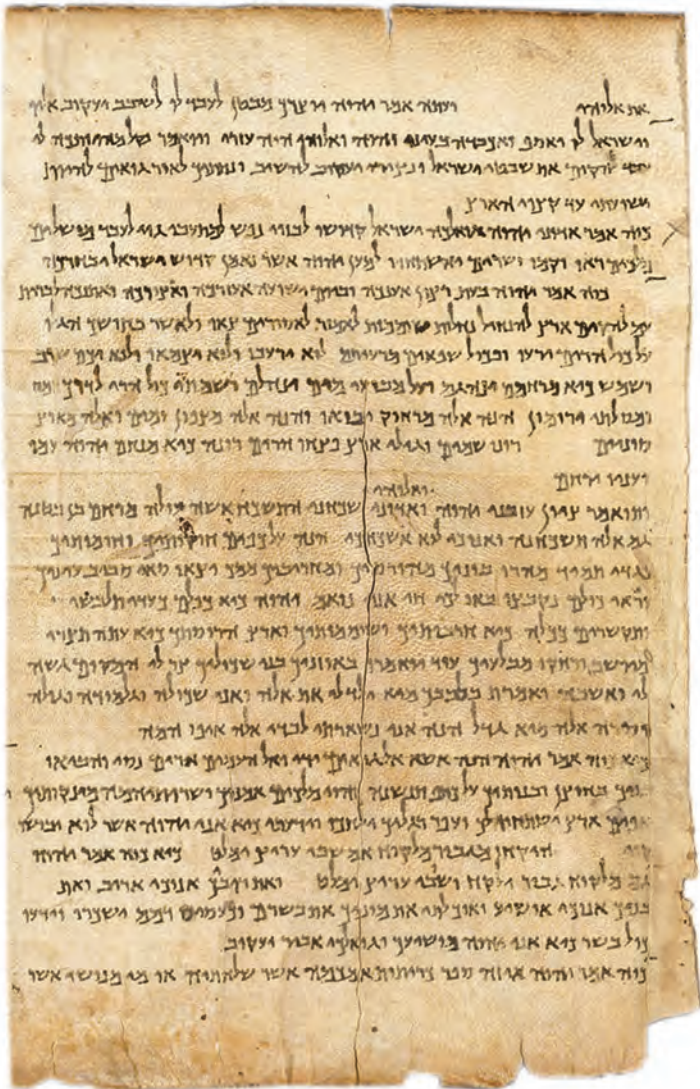 את אלוהי ועתה אמר יהוה יוצרך מבטן לעבד לו לשובב יעקוב אליו
וישראל לו יאסף ואכבדה בעיני יהוה ואלוהי היה עזרי ויואמר לי
עבד להקים את שבטי ישראל ונצירי יעקוב להשיב ונתתיך לאור גואים להיות
ישועתי עד קצוי הארץ
כוה אמר אדוני יהוה גואלכה ישראל קדושו לבזוי נפש למתעבי גוי לעבד מושלים
מלכים ראו וקמו ושרים והשתחוו למען יהוה אשר נאמן קדוש ישראל יבחרכה
כוה אמר יהוה בעת רצון אענכה וביום ישועה אעזרכה ואצורכה ואתנכה לברית
עם להקים ארץ להנחיל נחלות שוממות לאמור לאסורים צאו ולאשר בחושך הגלו
על כול הרים ירעו ובכול שפאים מרעיתם לוא ירעבו ולוא יצמאו ולוא יכם שרב
ושמש כיא מרחמם ינהגם ועל מבועי מים ינהלם ושמתי כול הרי לדרך
ומסלותי ירומון הנה אלה מרחוק יבואו והנה אלה מצפון ומים ואלה מארץ
סוניים רונו שמים וגילי ארץ פצחו הרים רנה כיא מנחם יהוה עמו
ועניו ירחם
ואלוהי
ותואמר ציון עזבני יהוה ואדוני שכחני התשכח אשה עולה מרחם בן בטנה
גם אלה תשכחנה ואנוכי לוא אשכחך הנה על כפים חקותיך וחומותיך
נגדי תמיד מהרו בוניך מהורסיך ומחריביך ממך יצאו שאי סביב עיניך
וראי כולם נקבצו באו לך חי אני נואם יהוה כיא כלם כעדי תלבשי
ותקשרים ככלה כיא חרבותיך ושוממותיך וארץ הריסותיך כיא עתה תצרי
מיושב ורחקו מבלעיך עוד יואמרו באוזניך בני שכוליך צר לי המקום גשה
לי ואשבה ואמרת בלבבך מיא ילד לי את אלה ואני שכולה וגלמודה גולה
וסרה אלה מיא גדל הנה אני נשארתי לבדי אלה איפו המה
כיא כוה אמר יהוה הנה אשא אל גואים ידי ואל העמים ארים נסי והביאו
בניך בחוצן ובנותיך על כתף תנשינה והיו מלכים אמניך ושרותיהמה מיניקותיך
אפים ארץ ישתחוו לך ועפר רגליך ילחכו וידעתי כיא אני יהוה אשר לוא יבושו
קוי היקחו מגבור מלקוח אם שבי עריץ ימלט כיא כוה אמר יהוה
גם מלקוח גבור ילקח ושבי עריץ ימלט ואת ריבך אנוכי אריב ואת
בניך אנוכי אושיע ואוכלתי את מוניך את בשרם וכעסיס דמם ישכרו וידעו
כול בשר כיא אני יהוה מושיעך וגואלך אביר יעקוב
כוה אמר יהוה אי זה ספר כריתות אמכמה אשר שלחתיה או מי מנושי אשר